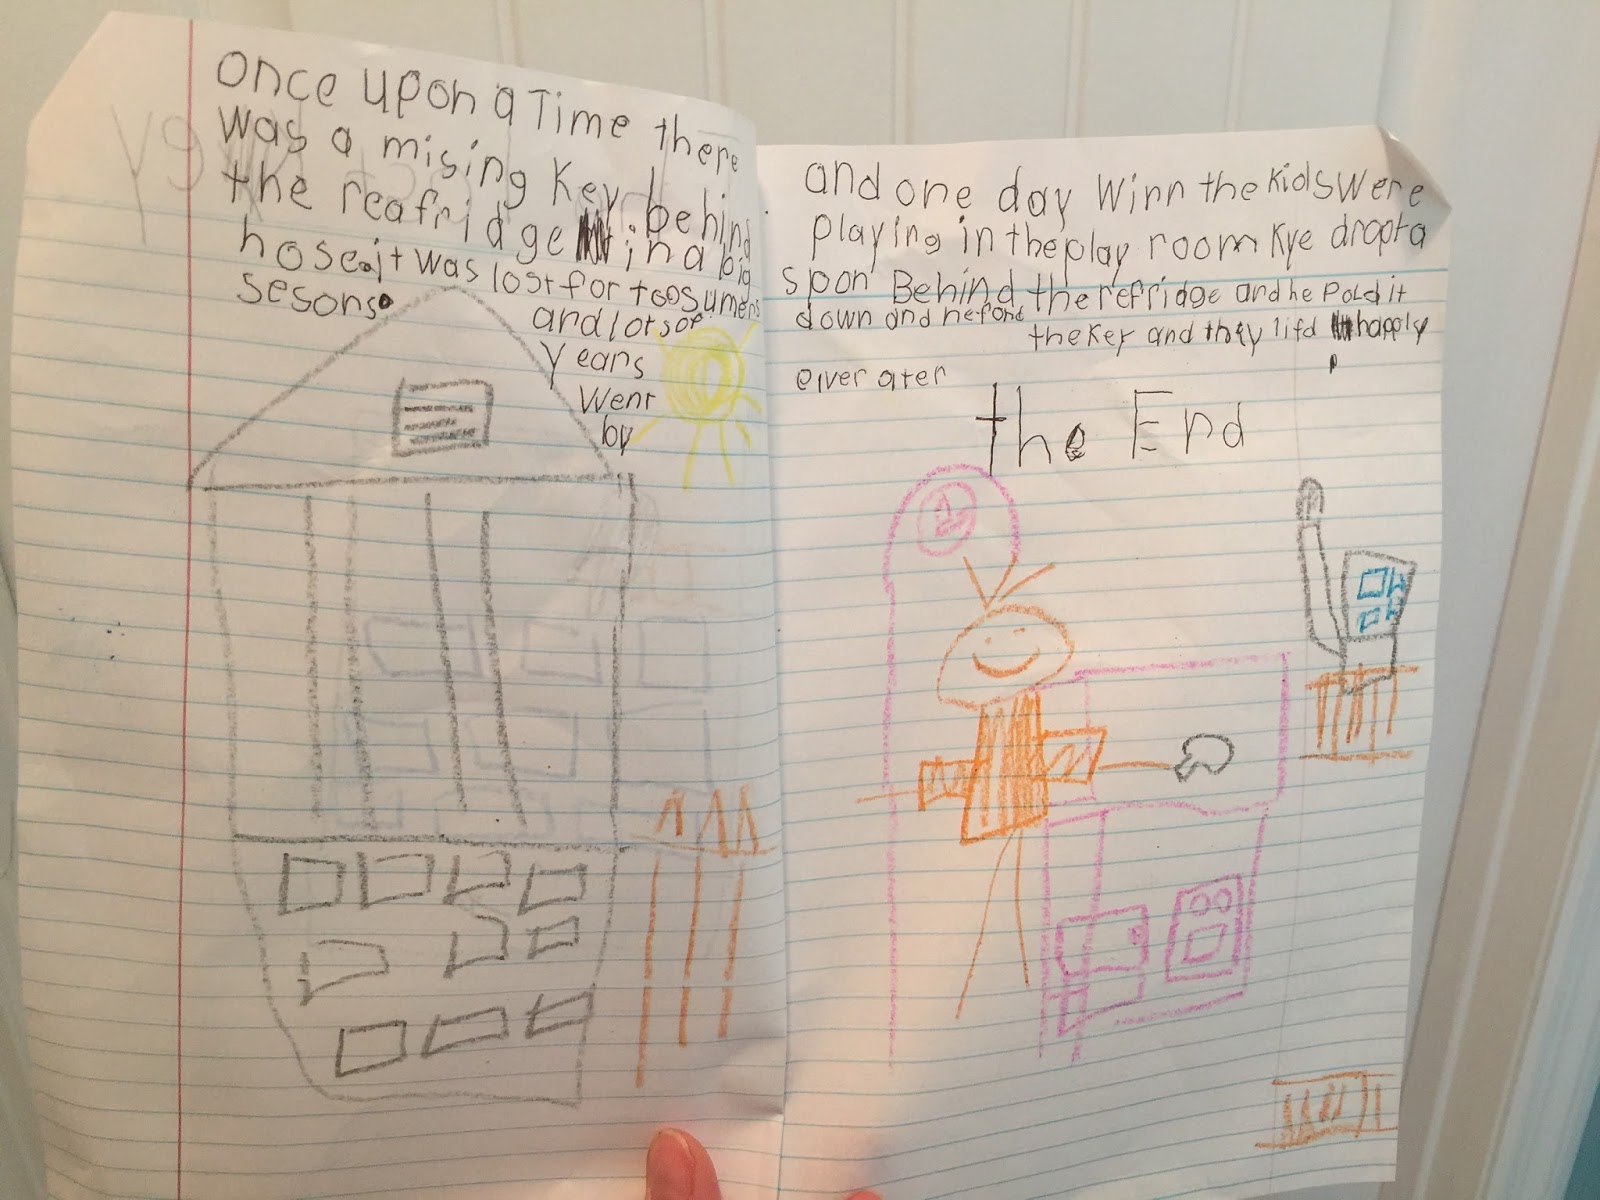 once upon a Time there
was a mising Key behind
the reafridge in a big
hose. it was lost for toosumers
sesons.
and lots of
years
went
by
and one day Winn the kids were
playing in the play room Kye dropt a
spoon Behind the refridge and he Pold it
down and he fond
the Key and they lifd happly
eiver ater
the End